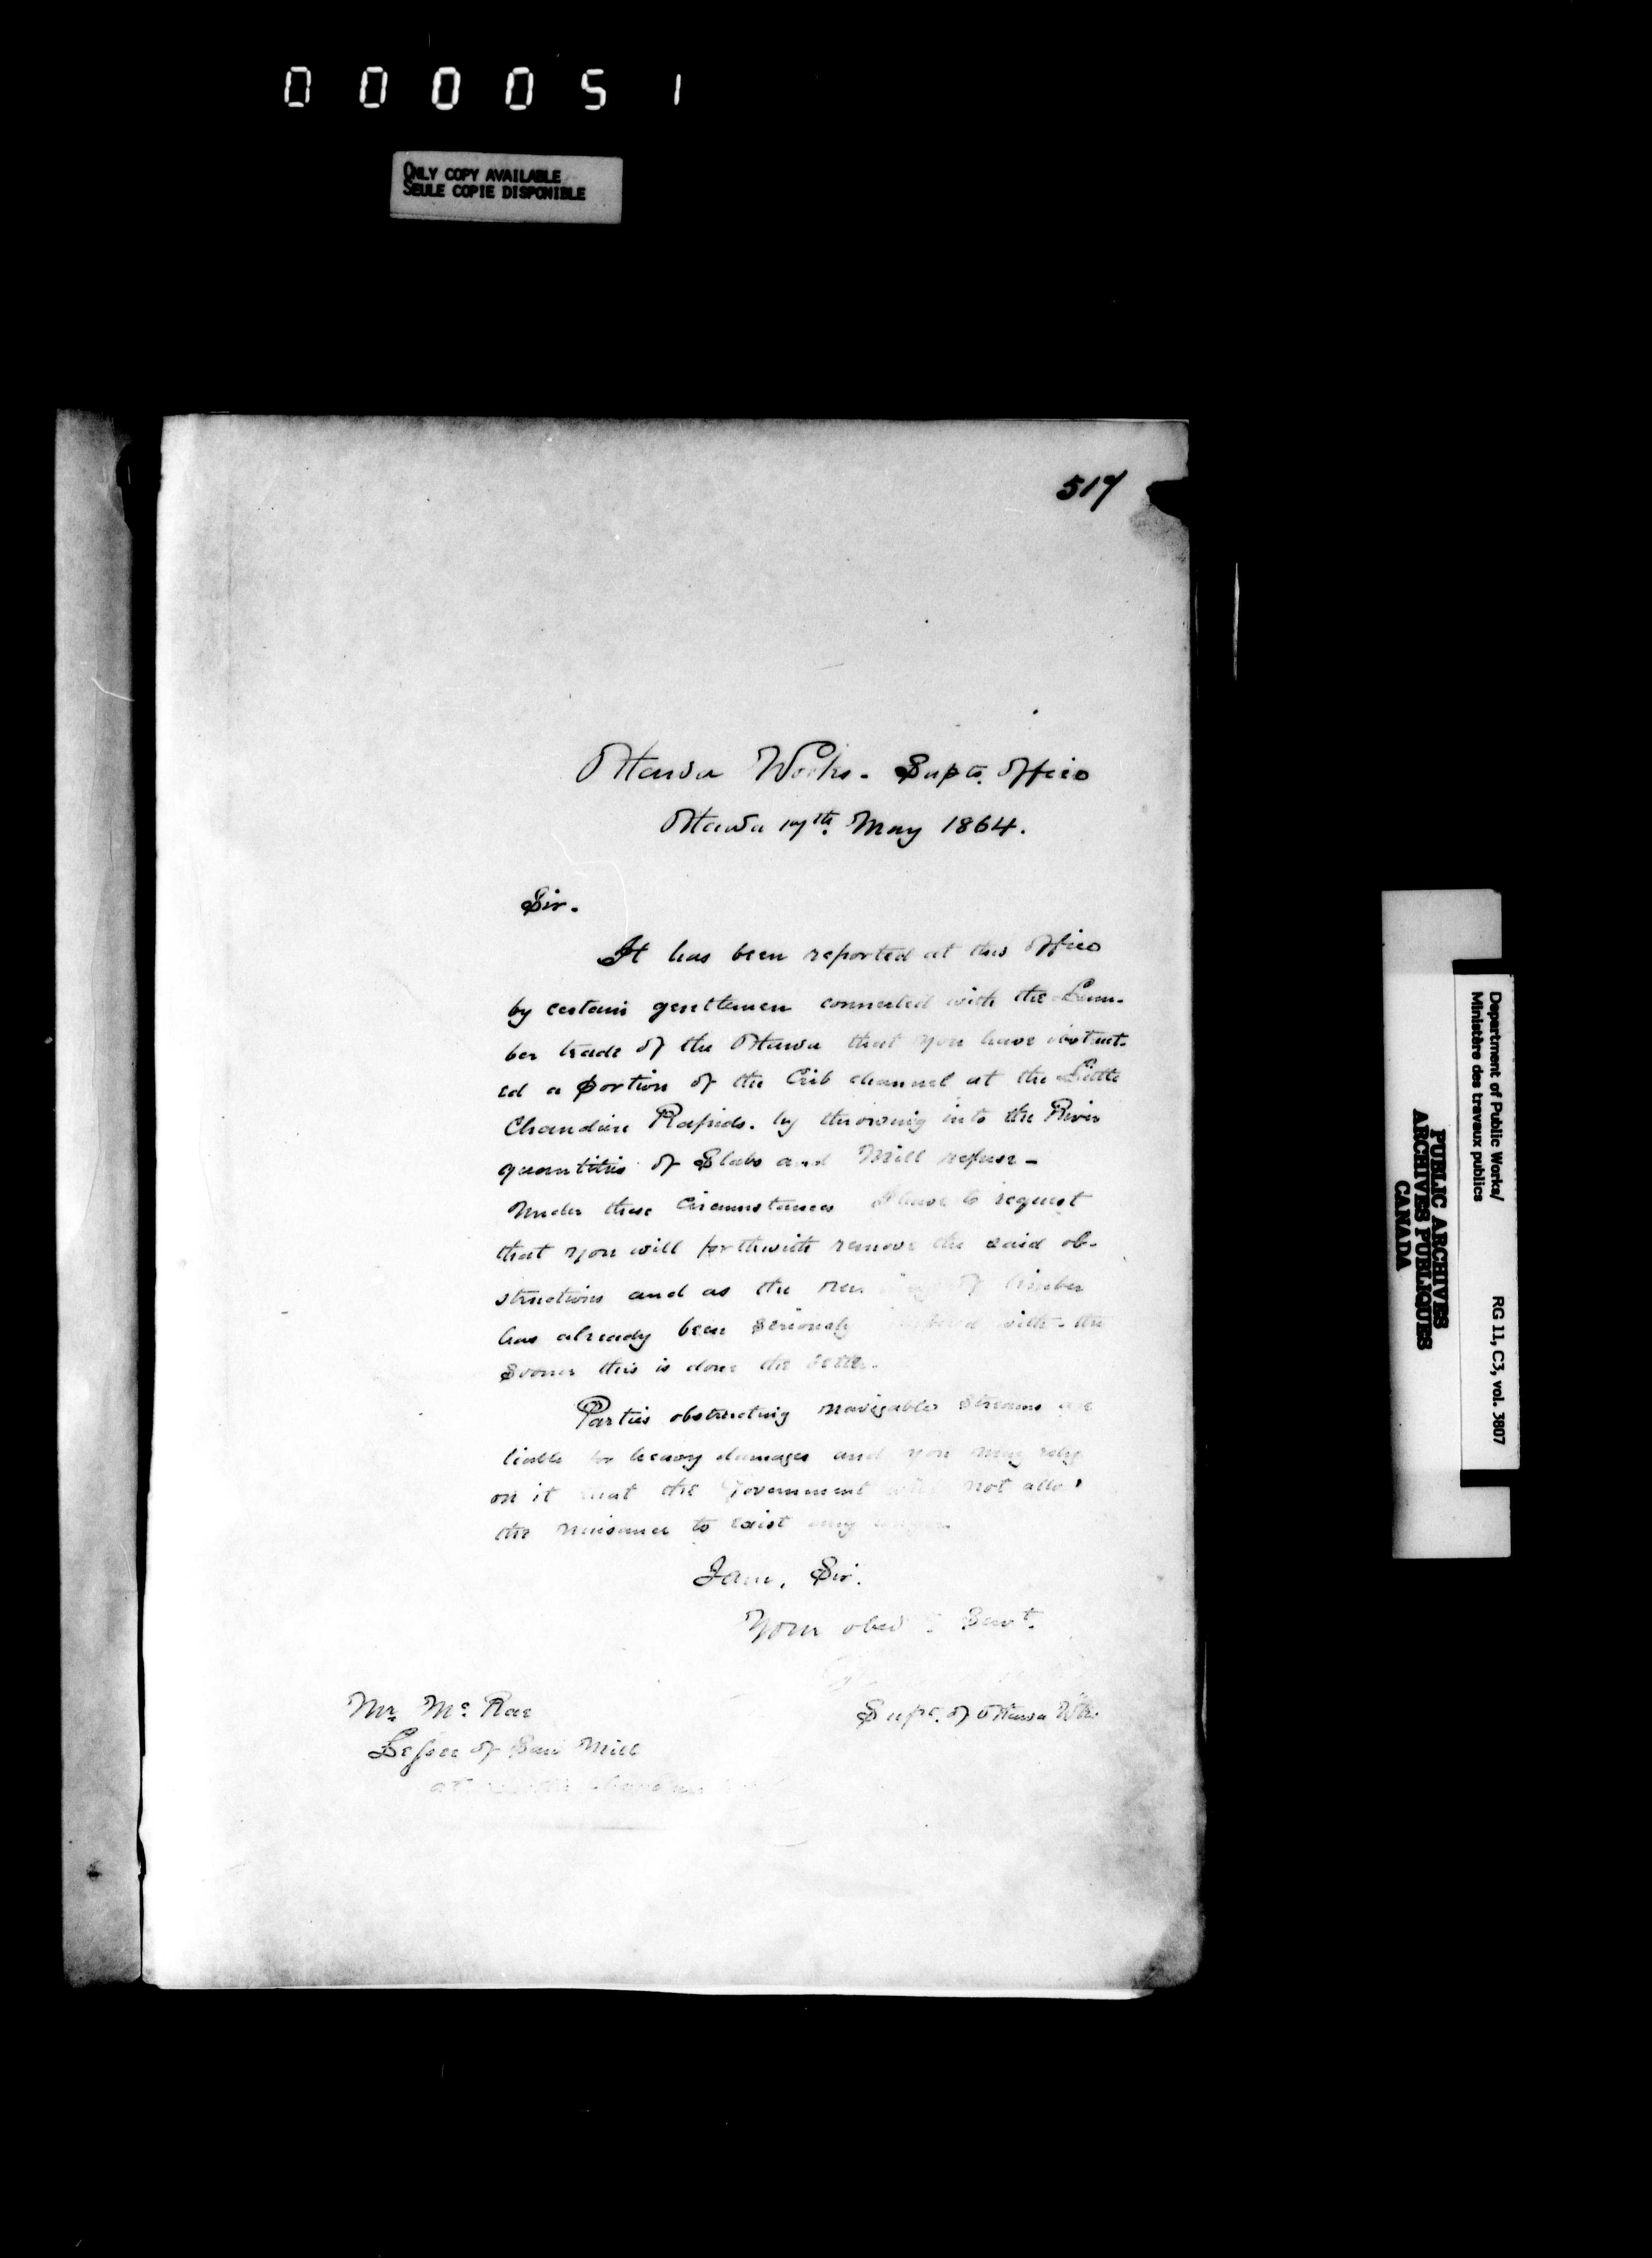 000051
ONLY COPY AVAILABLE
SEULE COPIE DISPONIBLE
517
Ottawa Works. Supts. Office
Ottawa 17th May 1864.
Sir.
It has been reported at this Office
by certain gentlemen connected with the Lum-
ber trade of the Ottawa that you have obstruct-
ed a portion of the Crib channel at the Little
Chaudiere Rapids. by throwing into the River
quantities of Slabs and Mill refuse -
Under these Circumstances I have to request
that you will forthwith remove the said ob-
structions and as the running of timber
has already been seriously with - the
sooner this is done the better.
Parties obstructing navigable streams are
liable to heavy damages and you may rely
on it that the Government will not allow
the nuisance to exist any longer.
I am, Sir.
Your obedt. Servt.
Supt. of Ottawa Wks.
Mr. Mc Rae
Lessee of Saw Mill
at
Department of Public Works/
Ministère des travaux publics
RG 11, C3, vol. 3807
PUBLIC ARCHIVES
ARCHIVES PUBLIQUES
CANADA